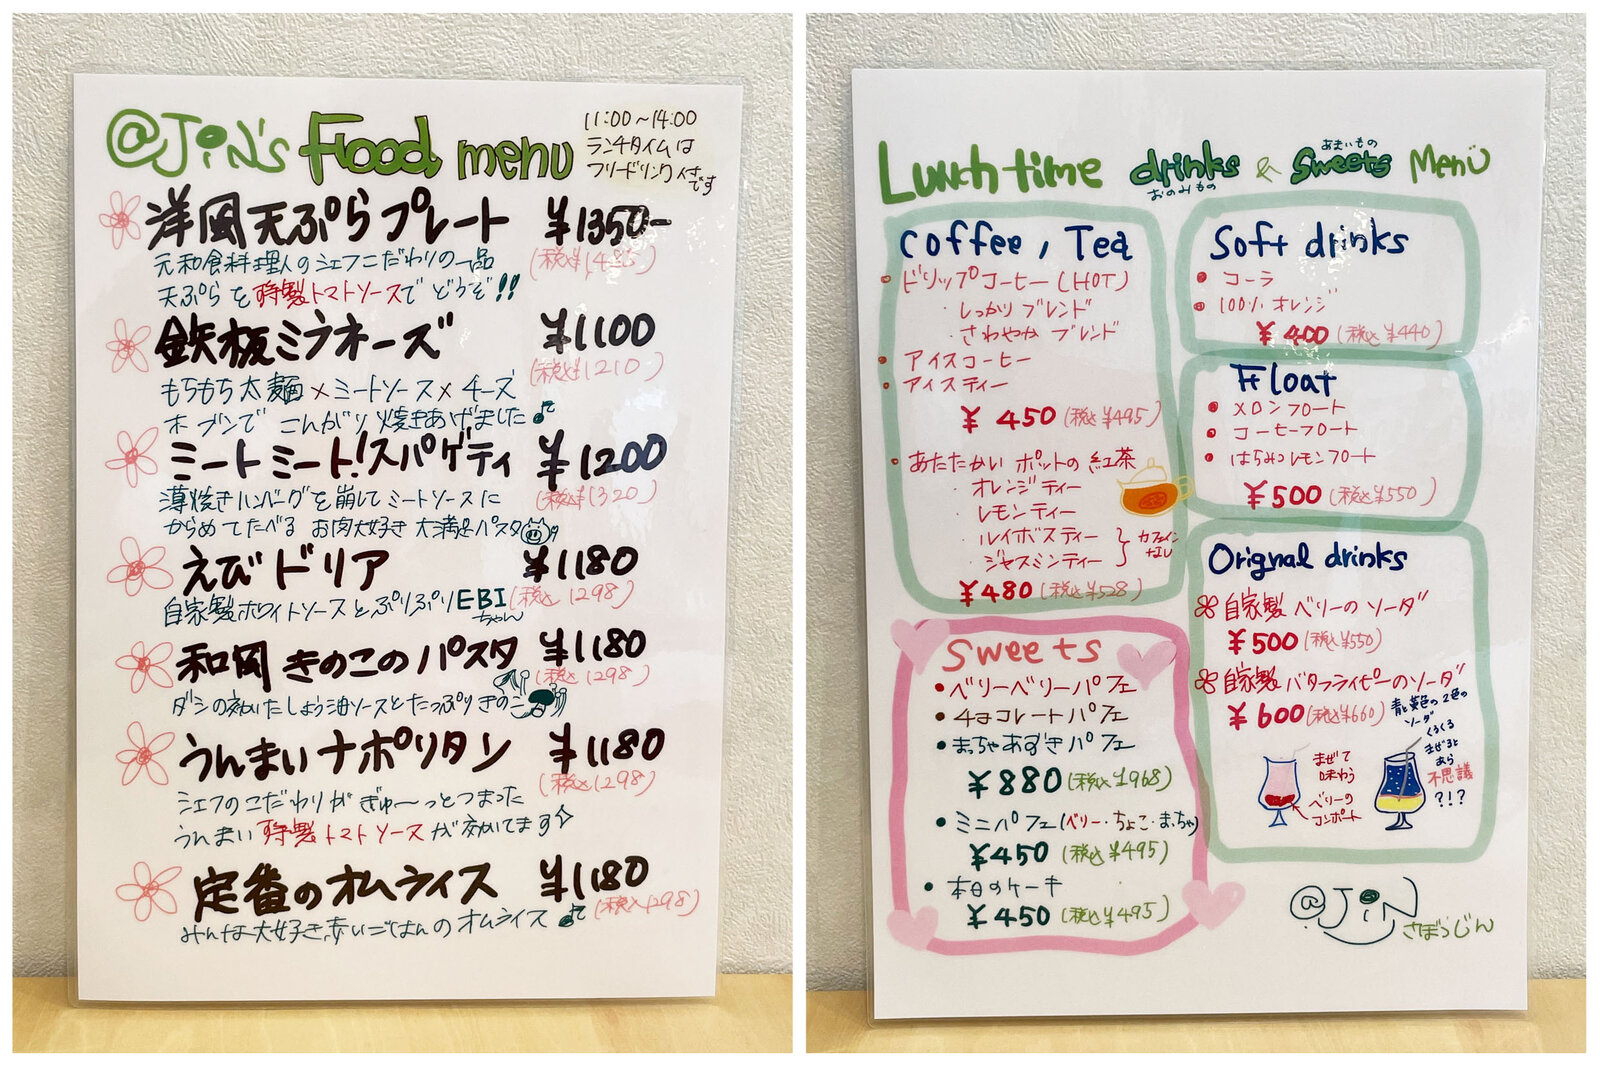 @JiN's Food menu
11:00~14:00
ランチタイムは
フリードリンク付き
です
洋風天ぷらプレート ¥1350-
(税込¥1485)
元和食料理人のシェフこだわりの一品
天ぷらを特製トマトソースでどうぞ!!
鉄板ミラネーズ ¥1100
(税込¥1210)
もちもち太麺×ミートソース×チーズ
オーブンでこんがり焼きあげました♪
ミートミート!スパゲティ ¥1200
(税込¥1320)
薄焼きハンバーグを崩してミートソースに
からめてたべる お肉大好き 大満足パスタ
えびドリア ¥1180
(税込1298)
自家製ホワイトソースとぷりぷりEBI
ちゃん
和風きのこのパスタ ¥1180
(税込1298)
ダシの効いたしょう油ソースとたっぷりきのこ
うんまいナポリタン ¥1180
(税込1298)
シェフのこだわりがぎゅ〜っとつまった
うんまい特製トマトソースが効いてます
定番のオムライス ¥1180
(税込1298)
みんな大好き、赤いごはんのオムライス♪
Lunch time drinks & Sweets Menu
おのみもの
あまいもの
Coffee, Tea
・ドリップコーヒー(HOT)
・しっかりブレンド
・さわやかブレンド
・アイスコーヒー
・アイスティー
¥450(税込¥495)
・あたたかいポットの紅茶
オレンジティー
レモンティー
ルイボスティー
ジャスミンティー
カフェイン
なし
¥480(税込¥528)
Sweets
・ベリーベリーパフェ
・チョコレートパフェ
・まっちゃあずきパフェ
¥880(税込¥968)
・ミニパフェ(ベリー・ちょこ・まっちゃ)
¥450(税込¥495)
・本日のケーキ
¥450(税込¥495)
Soft drinks
・コーラ
・100%オレンジ
¥400(税込¥440)
Float
・メロンフロート
・コーヒーフロート
・はちみつレモンフロート
¥500(税込¥550)
Orignal drinks
自家製ベリーのソーダ
¥500(税込¥550)
自家製バタフライピーのソーダ
¥600(税込¥660)
青と黄色の2色の
ソーダ
くるくる
まぜると
あら
不思議
?!?
まぜて
味わう
ベリーの
コンポート
@JiN
さぼうじん